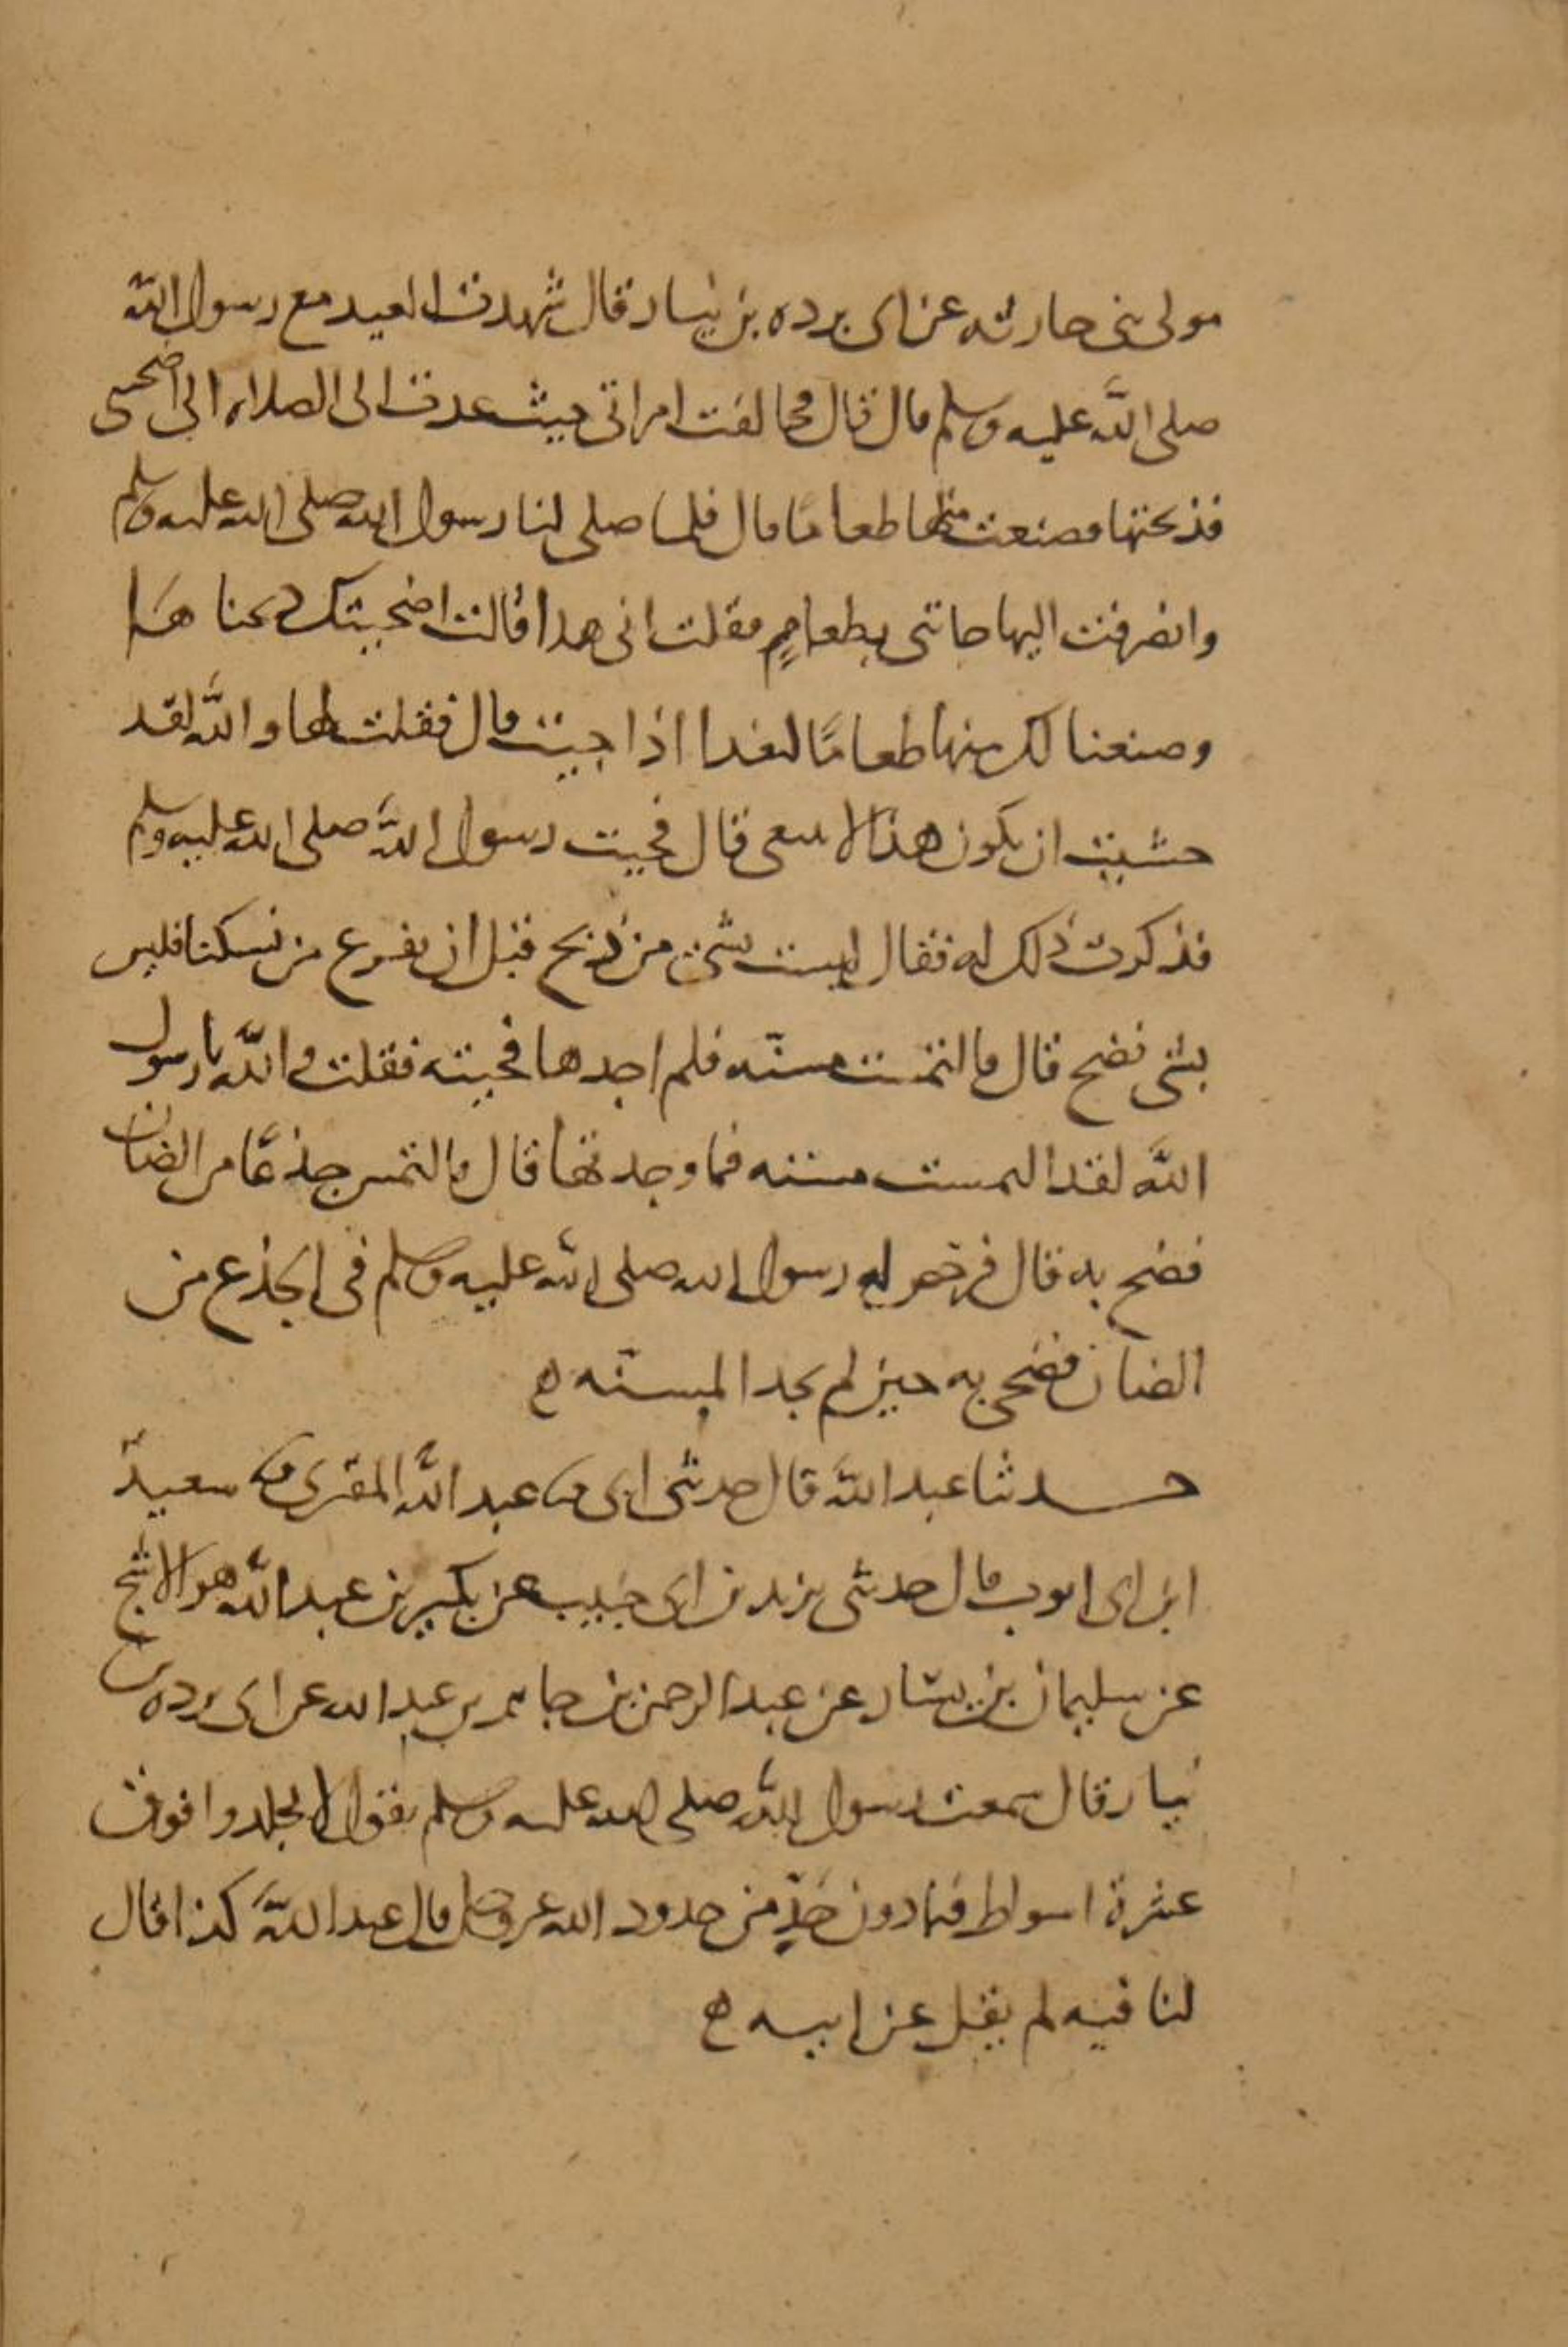 مولى بنى حارثه عن ابى برده بن نيسار قال شهدت العيد مع رسول الله
صلى الله عليه وسلم قال قال فخالفت امراتى حيث عدت الى الصلاه الى اضحيتى
فذبحتها وصنعت منها طعامًا قال فلما صلى لنا رسول الله صلى الله عليه وسلم
وانصرفت اليها جاتنى بطعامٍ فقلت انى هدا قالت اضحيتك دبحناها
وصنعنا لك منها طعامًا لغدا اذا جيت قال فقلت لها والله لقد
خشيت ان يكون هذا لا ينبغى قال فجيت رسول الله صلى الله عليه وسلم
فذكرت ذلك له فقال ليست بشى من ذبح قبل ان يفرع من نسكنا فليس
بشى فضح قال فالتمست مسنّه فلم اجدها فجيته فقلت والله يا رسول
الله لقد التمست مسنه فما وجدتها قال فالتمس جذعًا من الضان
فضح به قال فرخص له رسول الله صلى الله عليه وسلم فى الجذع من
الضان فضحى به حين لم يجد المسنّه ه
حدثنا عبد الله قال حدثنى ابى ثنا عبد الله المقرى ثنا سعيد
ابن ابى ايوب قال حدثنى يزيد بن ابى حبيب عن بكير بن عبد الله هو الاشج
عن سليمان بن يسار عن عبد الرحمن بن جابر بن عبد الله عن ابى برده بن
نيار قال سمعت رسول الله صلى الله عليه وسلم يقول لا يجلدوا فوق
عشرة اسواط فيما دون حدٍّ من حدود الله عز وجل قال عبد الله كذا قال
لنا فيه لم يقل عن ابيه ه